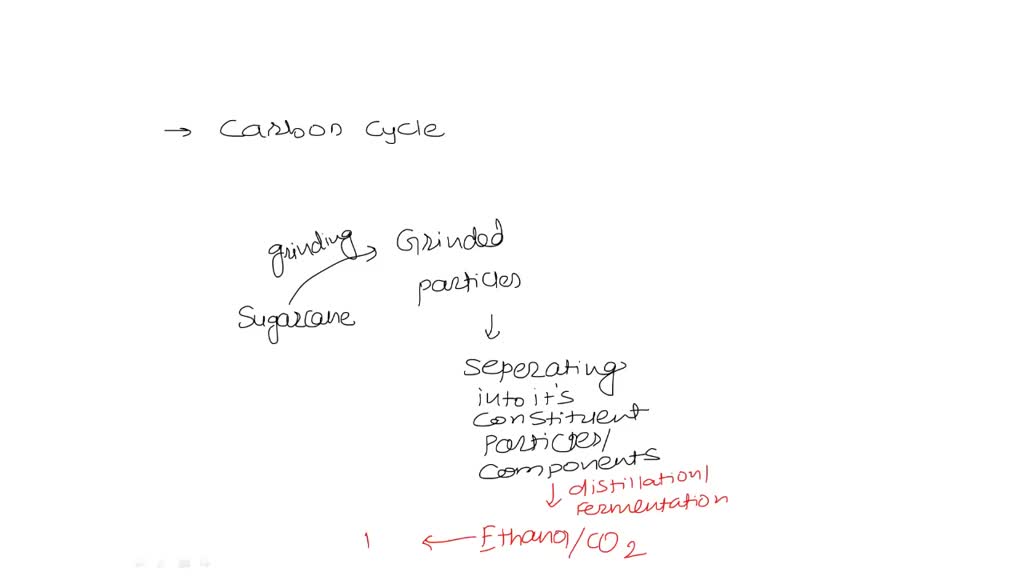 → Carbon cycle
grinding
Grinded
particles
Sugarcane
↓
Seperating
into it's
constituent
particles/
components
↓ distillation/
Fermentation
← Ethanol/CO2